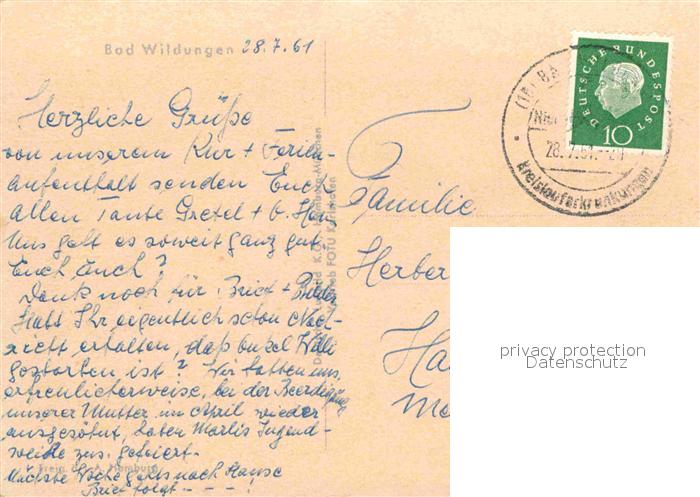 Bad Wildungen 28.7.61
Herzliche Grüße
von unserem Kur + Ferien-
aufenthalt senden Euch
allen Tante Gretel + O. Her
Uns geht es soweit ganz gut
Euch auch?
Dank noch für Brief + Bilder
Habt Ihr eigentlich schon Nach-
richt erhalten, daß Onkel Willi
gestorben ist? Wir hatten uns,
erfreulicherweise, bei der Beerdigung
unserer Mutter im April wieder
ausgesöhnt, haben Marlis Jugend-
weihe zus. gefeiert.
Nächste Woche gehts nach Hause
Brief folgt - - - !
Hamburg
DEUTSCHE BUNDESPOST
10
28.7.61
Kreislauferkrankungen
Familie
Herber
Ha
privacy protection
Datenschutz